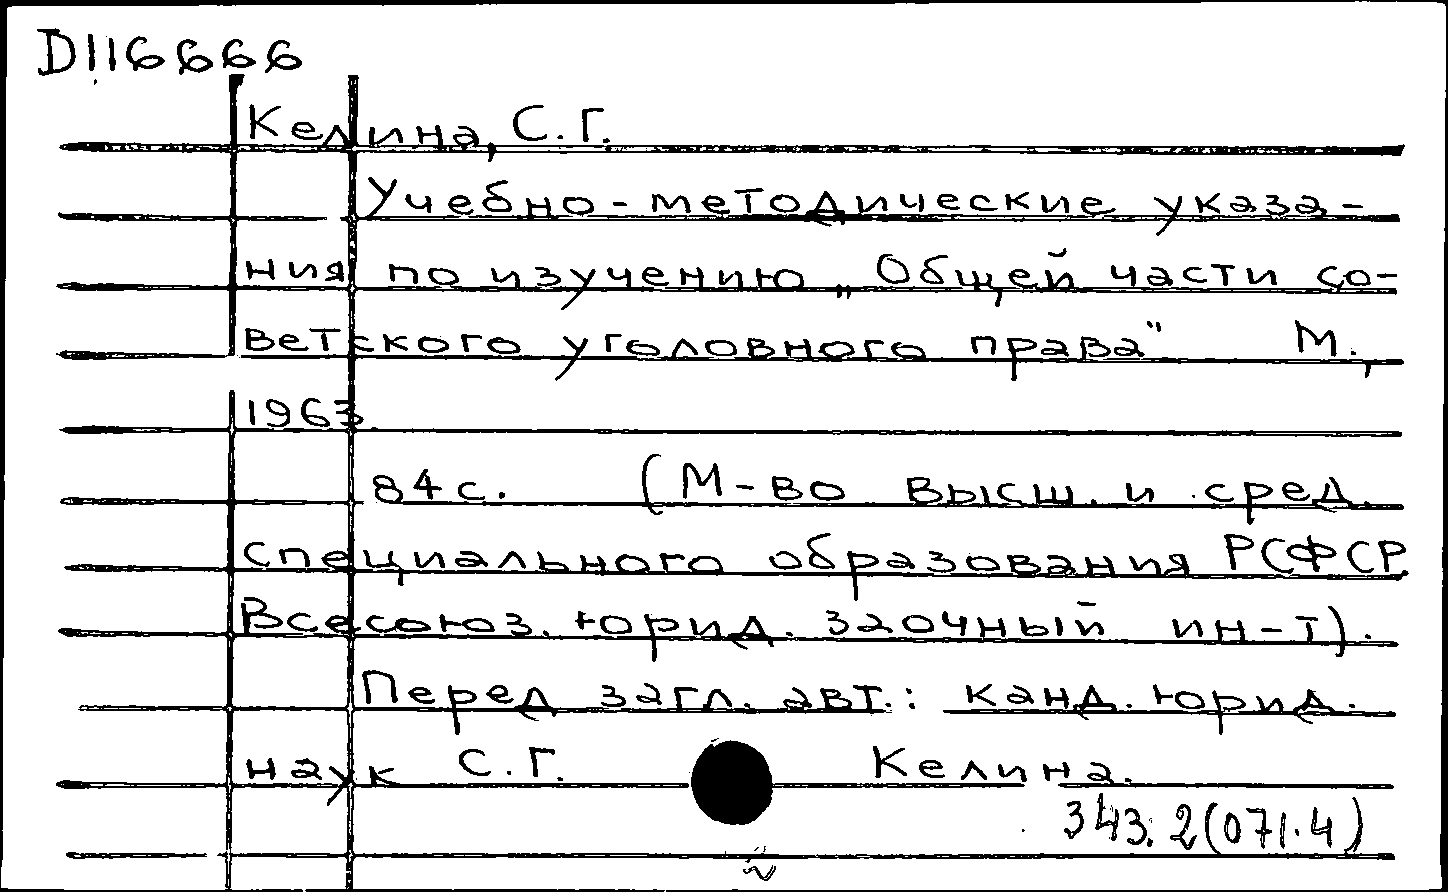 D116666
Келина, С.Г.
Учебно-методические указа-
ния по изучению „Общей части со-
ветского уголовного права" М.,
1963.
84 с. (М-во высш. и сред.
специального образования РСФСР
Всесоюз. юрид. заочный ин-т).
Перед загл. авт.: канд. юрид.
наук С.Г. Келина.
343.2(071.4)